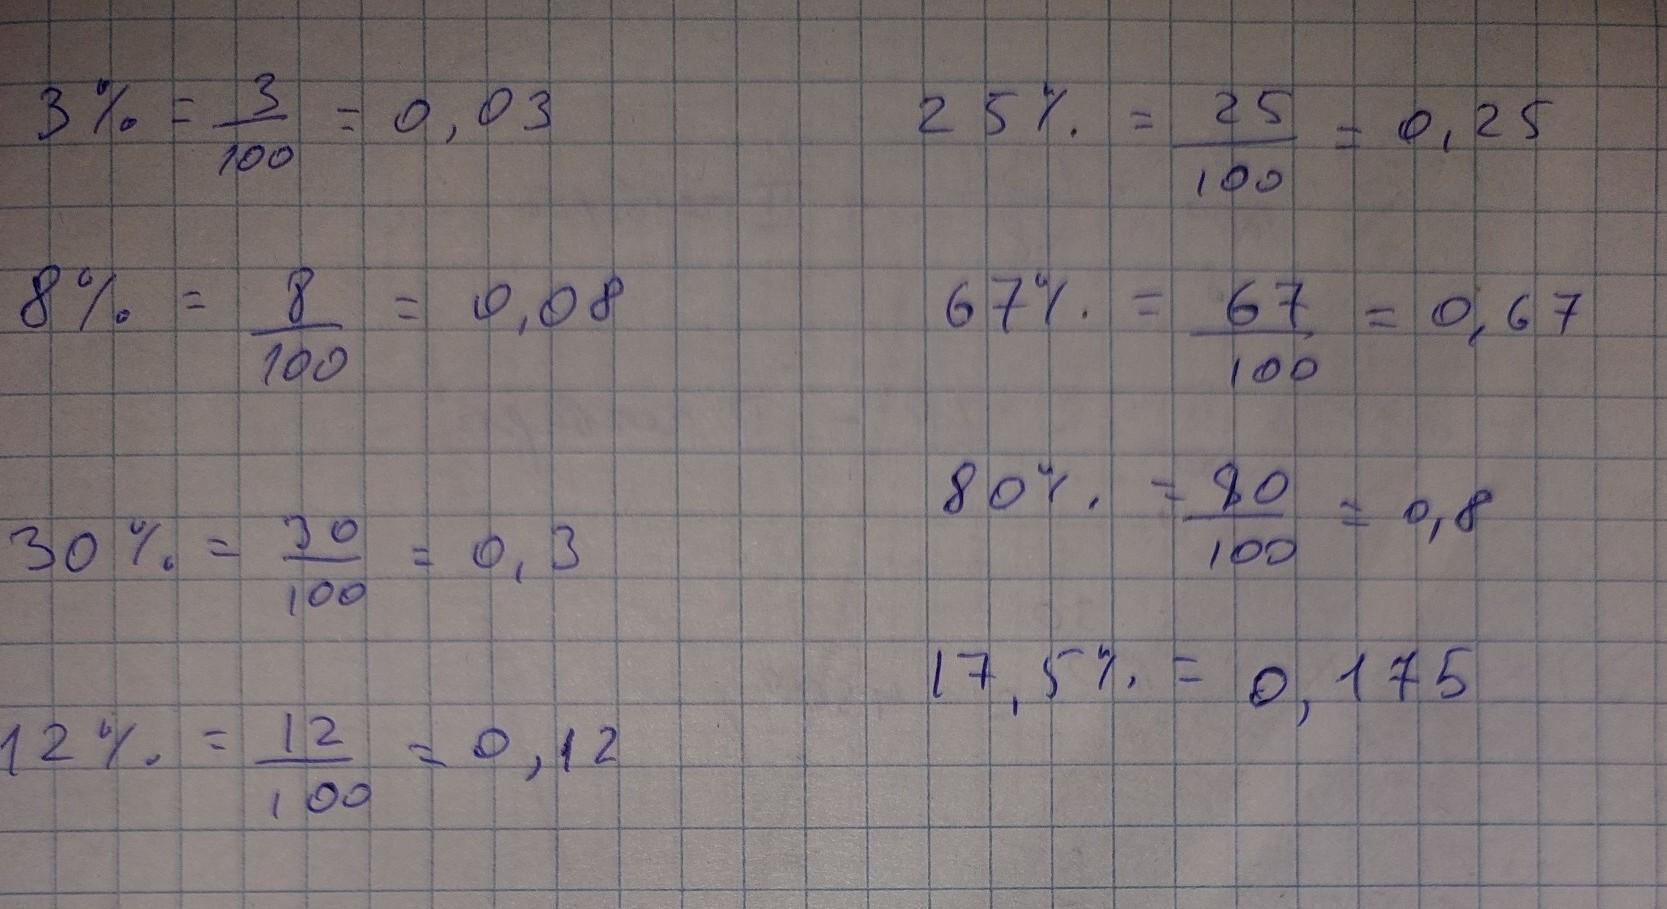 3% = 3/100 = 0,03
8% = 8/100 = 0,08
30% = 30/100 = 0,3
12% = 12/100 = 0,12
25% = 25/100 = 0,25
67% = 67/100 = 0,67
80% = 80/100 = 0,8
17,5% = 0,175